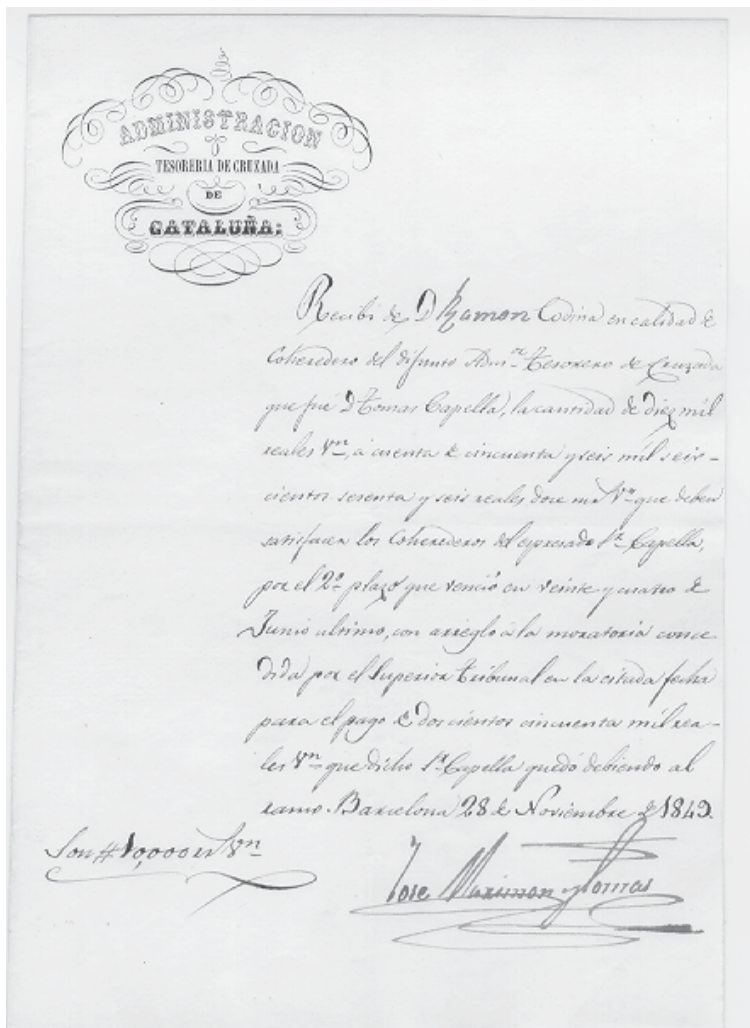 ADMINISTRACION
TESORERIA DE CRUZADA
DE
CATALUÑA:
Recibi de D Ramon Codina en calidad de
Coheredero del difunto Adm.or Tesorero de Cruzada
que fué D Tomas Capella, la cantidad de diez mil
reales Vn, á cuenta de cincuenta y seis mil seis-
cientos sesenta y seis reales doce mrs Vn que deben
satisfacer los Coherederos del espresado Sr Capella,
por el 2º plazo que venció en veinte y cuatro de
Junio ultimo, con arreglo á la moratoria conce
dida por el Superior tribunal en la citada fecha
para el pago de dos cientos cincuenta mil rea-
les Vn que dicho Sr Capella quedó debiendo al
ramo. Barcelona 28 de Noviembre de 1849.
Son # 10,000 rs Vn
Jose Marimon y Tomas